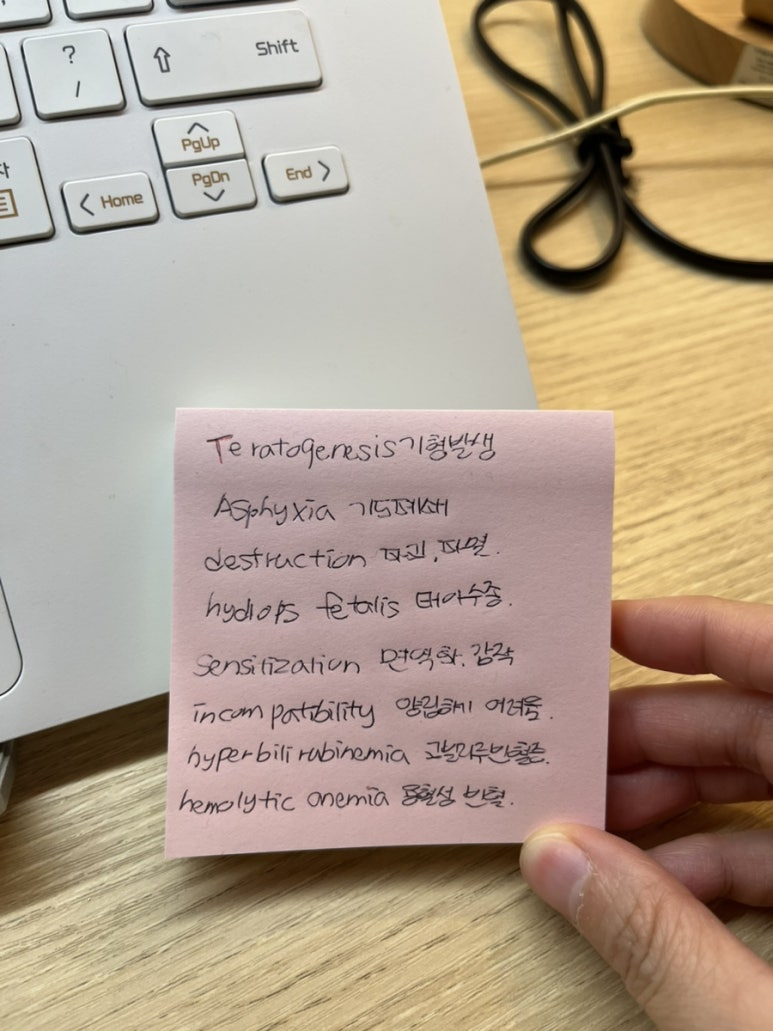 ?
/
Shift
PgUp
PgDn
Home
End
Teratogenesis 기형발생
Asphyxia 기도폐쇄
destruction 파괴, 파멸.
hydrops fetalis 태아수종.
Sensitization 면역화, 감작
incompatibility 양립하기 어려움.
hyperbilirubinemia 고빌리루빈혈증.
hemolytic anemia 용혈성 빈혈.